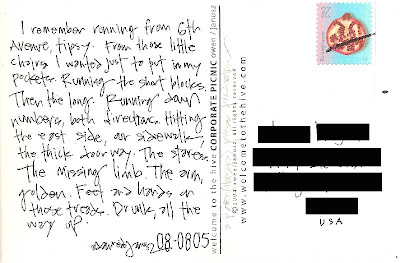 I remember running from 6th
Avenue, tipsy. From those little
chairs I wanted just to put in my
pockets. Running the short blocks.
Then the long. Running down
numbers, both directions. Hitting
the east side, our sidewalk,
the thick doorway. The stares.
The missing limb. The arm,
golden. Feet and hands on
those treads. Drunk, all the
way up.
08.0805
welcome to the hive CORPORATE PICNIC owen / janusz
©2004 owen/janusz, all rights reserved
www.welcometothehive.com
USA